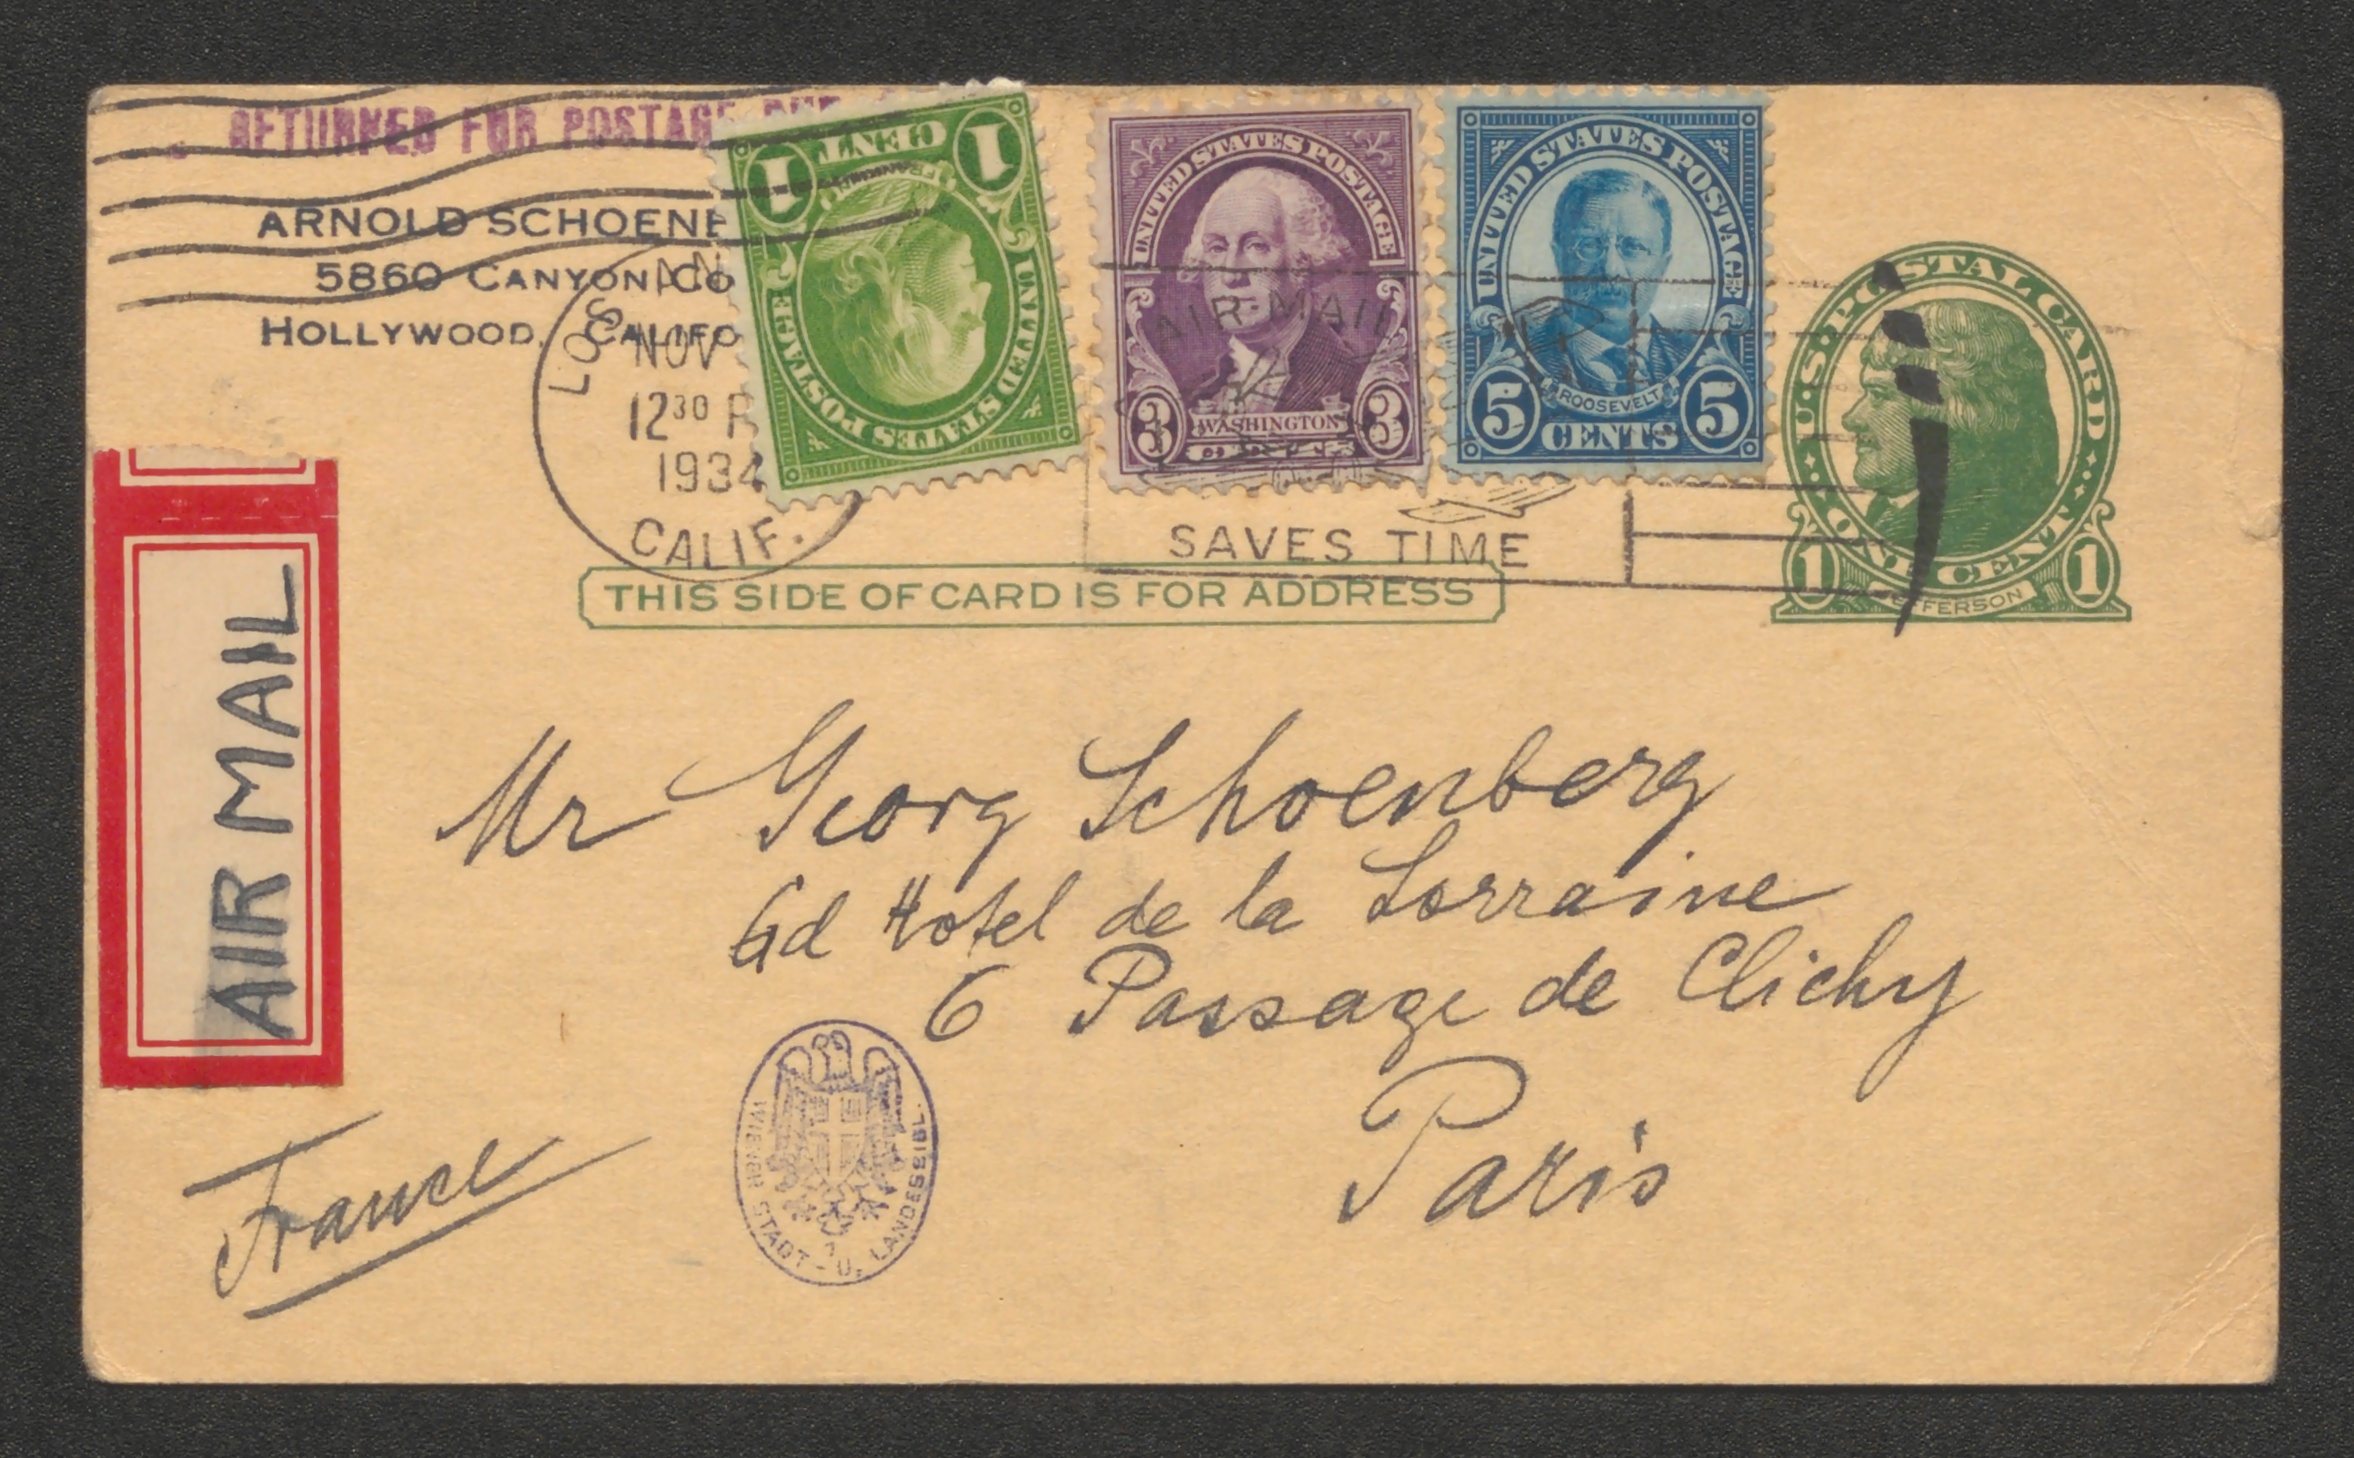 RETURNED FOR POSTAGE
ARNOLD SCHOENE
5860 CANYON CO
HOLLYWOOD, CALIFO
LOS AN
NOV
12 30 P
1934
CALIF.
1 CENT 1
FRANKLIN
UNITED STATES POSTAGE
UNITED STATES POSTAGE
3 WASHINGTON 3
UNITED STATES POSTAGE
ROOSEVELT
5 CENTS 5
AIR MAIL
SAVES TIME
U.S. POSTAL CARD
ONE CENT
1 JEFFERSON 1
THIS SIDE OF CARD IS FOR ADDRESS
AIR MAIL
Mr Georg Schoenberg
Gd Hotel de la Lorraine
6 Passage de Clichy
Paris
France
WIENER STADT- U. LANDESBIBL.